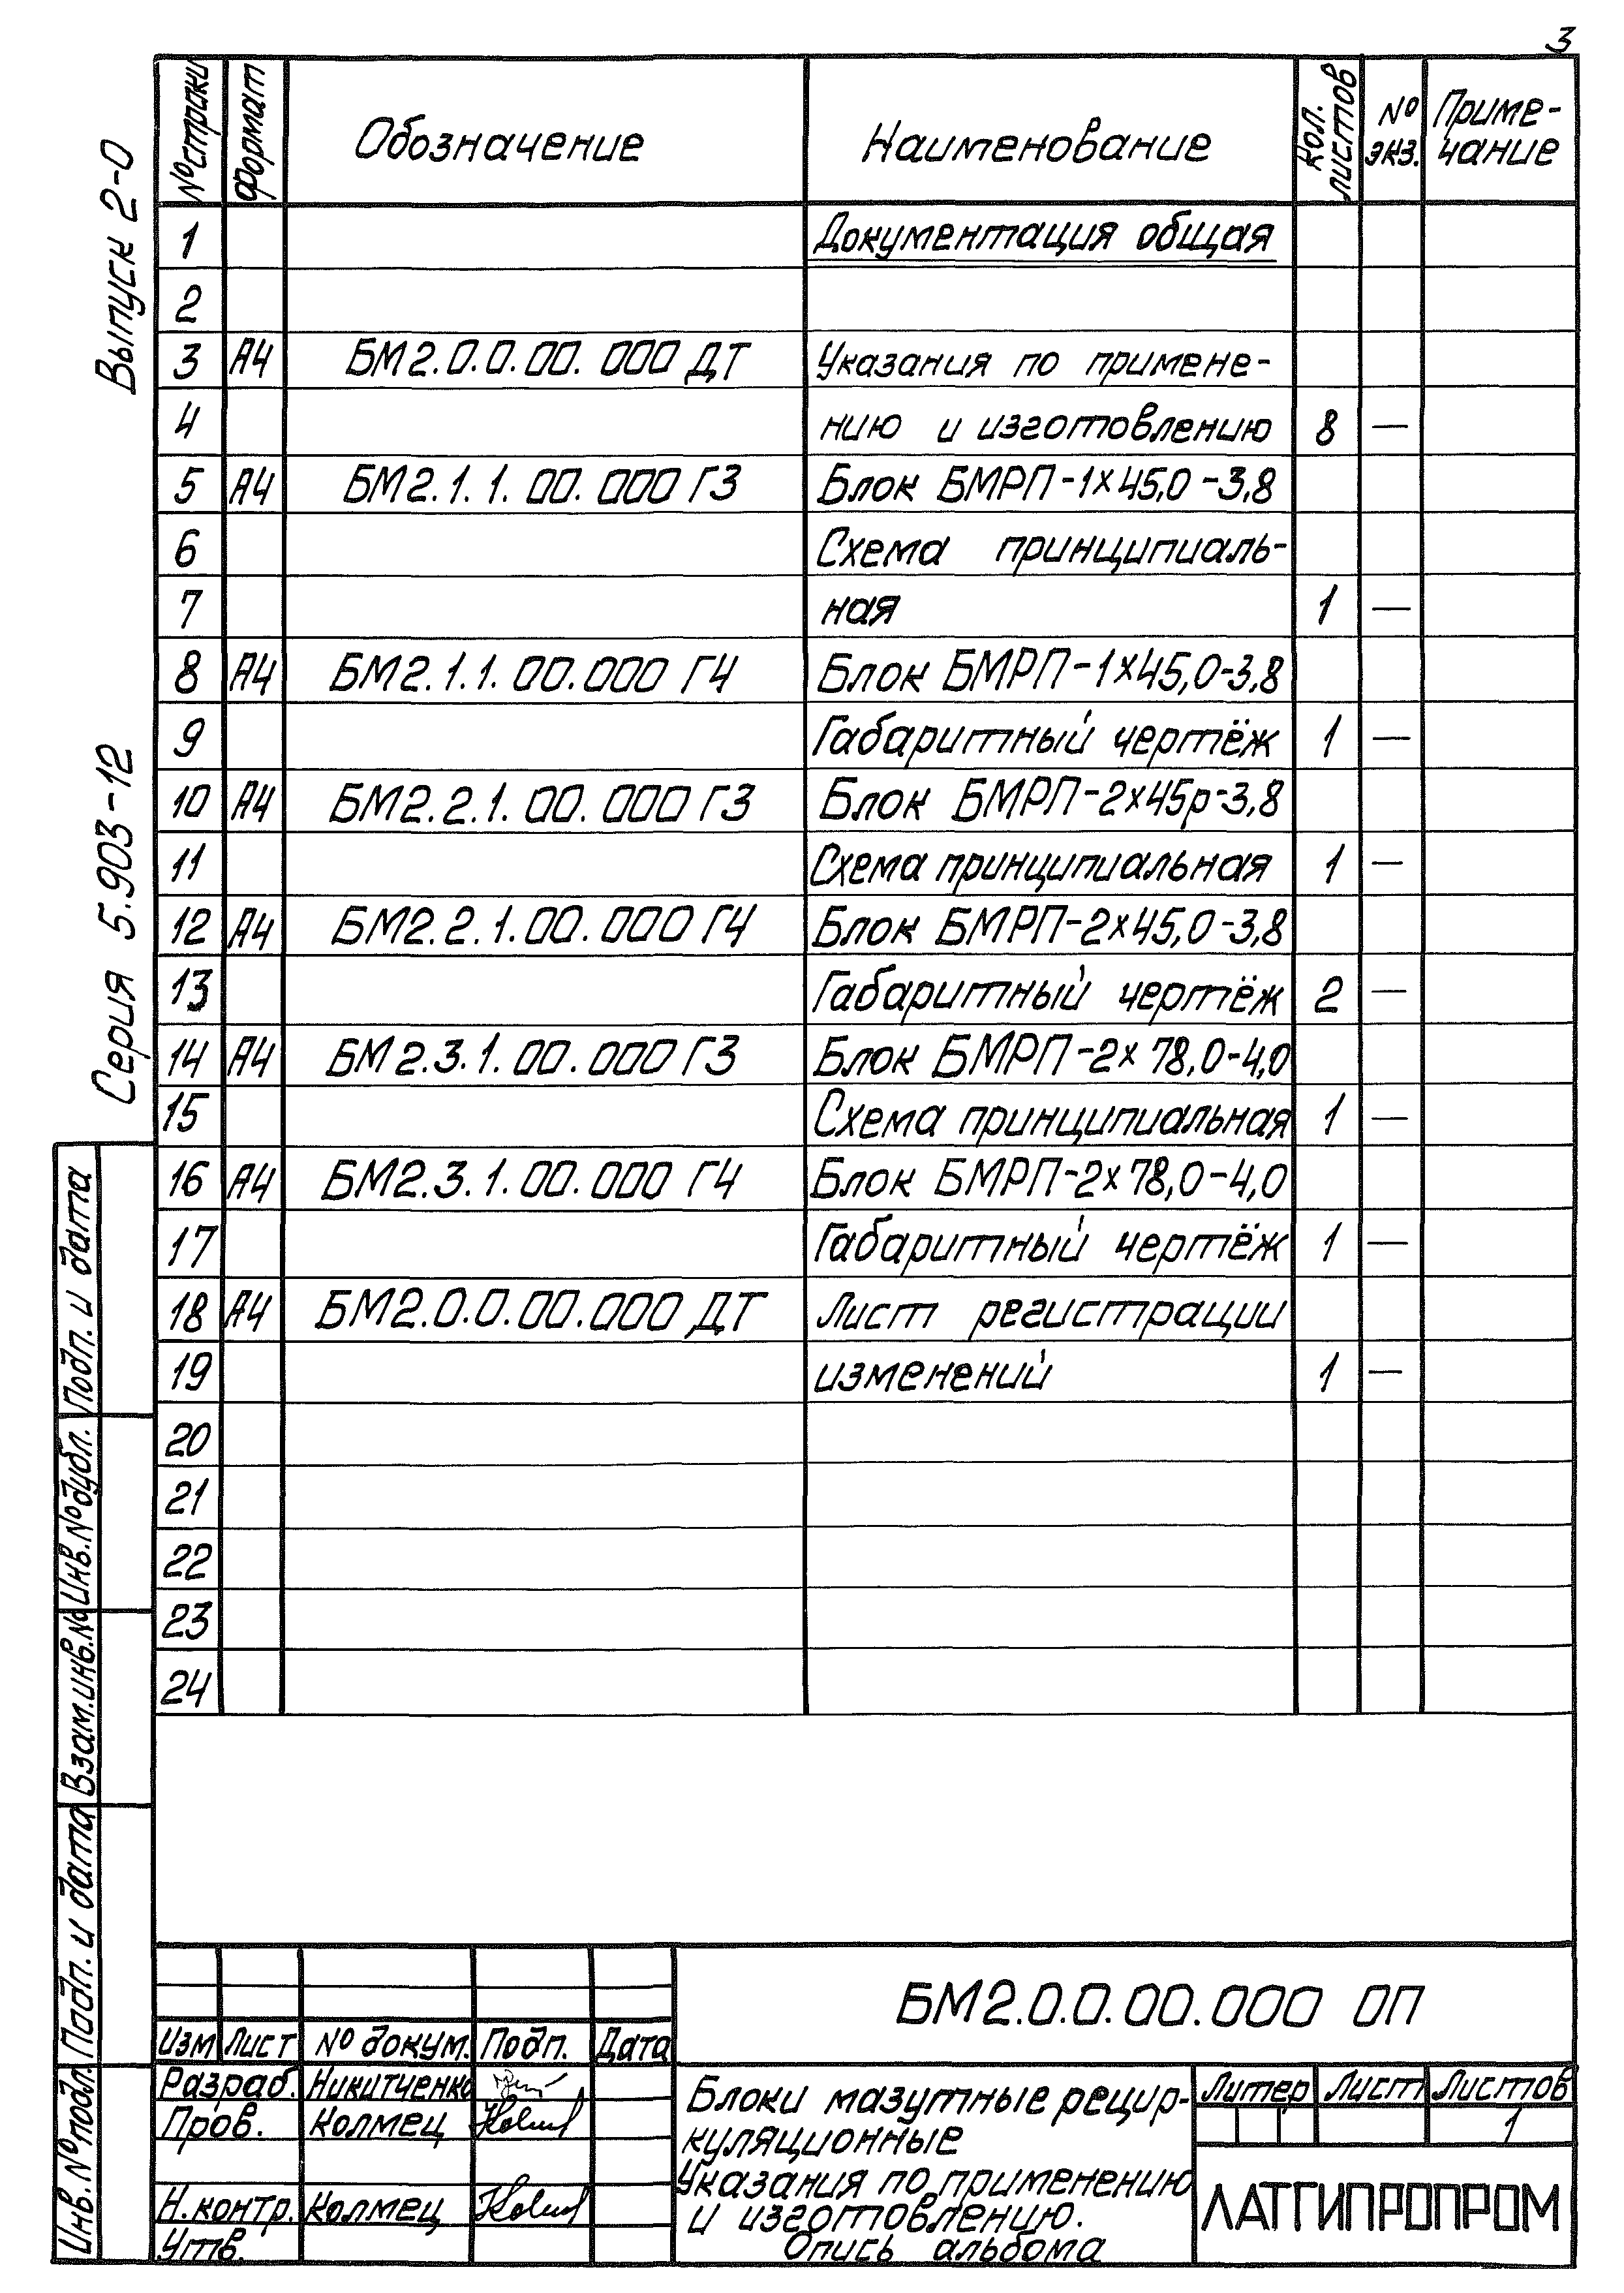 3
Серия 5.903-12 Выпуск 2-0
№ строки формат Обозначение Наименование Кол. листов № экз. Приме-чание
1 Документация общая
2
3 А4 БМ2.0.0.00.000 ДТ Указания по примене-
4 нию и изготовлению 8 —
5 А4 БМ2.1.1.00.000 Г3 Блок БМРП-1х45,0-3,8
6 Схема принципиаль-
7 ная 1 —
8 А4 БМ2.1.1.00.000 Г4 Блок БМРП-1х45,0-3,8
9 Габаритный чертёж 1 —
10 А4 БМ2.2.1.00.000 Г3 Блок БМРП-2х45р-3,8
11 Схема принципиальная 1 —
12 А4 БМ2.2.1.00.000 Г4 Блок БМРП-2х45,0-3,8
13 Габаритный чертёж 2 —
14 А4 БМ2.3.1.00.000 Г3 Блок БМРП-2х78,0-4,0
15 Схема принципиальная 1 —
16 А4 БМ2.3.1.00.000 Г4 Блок БМРП-2х78,0-4,0
17 Габаритный чертёж 1 —
18 А4 БМ2.0.0.00.000 ДТ Лист регистрации
19 изменений 1 —
20
21
22
23
24
Инв. № подл. Подп. и дата Взам.инв.№ Инв.№ дубл. Подп. и дата
БМ2.0.0.00.000 ОП
Изм Лист № докум. Подп. Дата
Разраб. Никитченко
Пров. Колмец
Н.контр. Колмец
Утв.
Блоки мазутные рецир-
куляционные
Указания по применению
и изготовлению.
Опись альбома
Литер Лист Листов
1
ЛАТГИПРОПРОМ